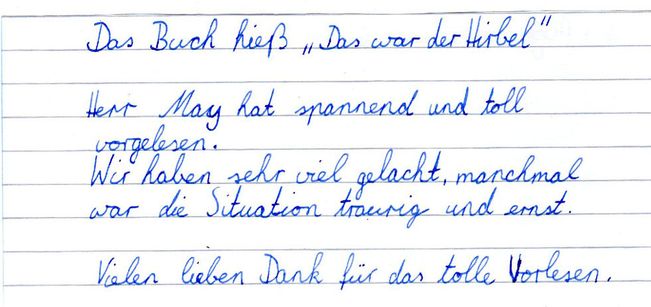 Das Buch hieß „Das war der Hirbel“
Herr May hat spannend und toll
vorgelesen.
Wir haben sehr viel gelacht, manchmal
war die Situation traurig und ernst.
Vielen lieben Dank für das tolle Vorlesen.